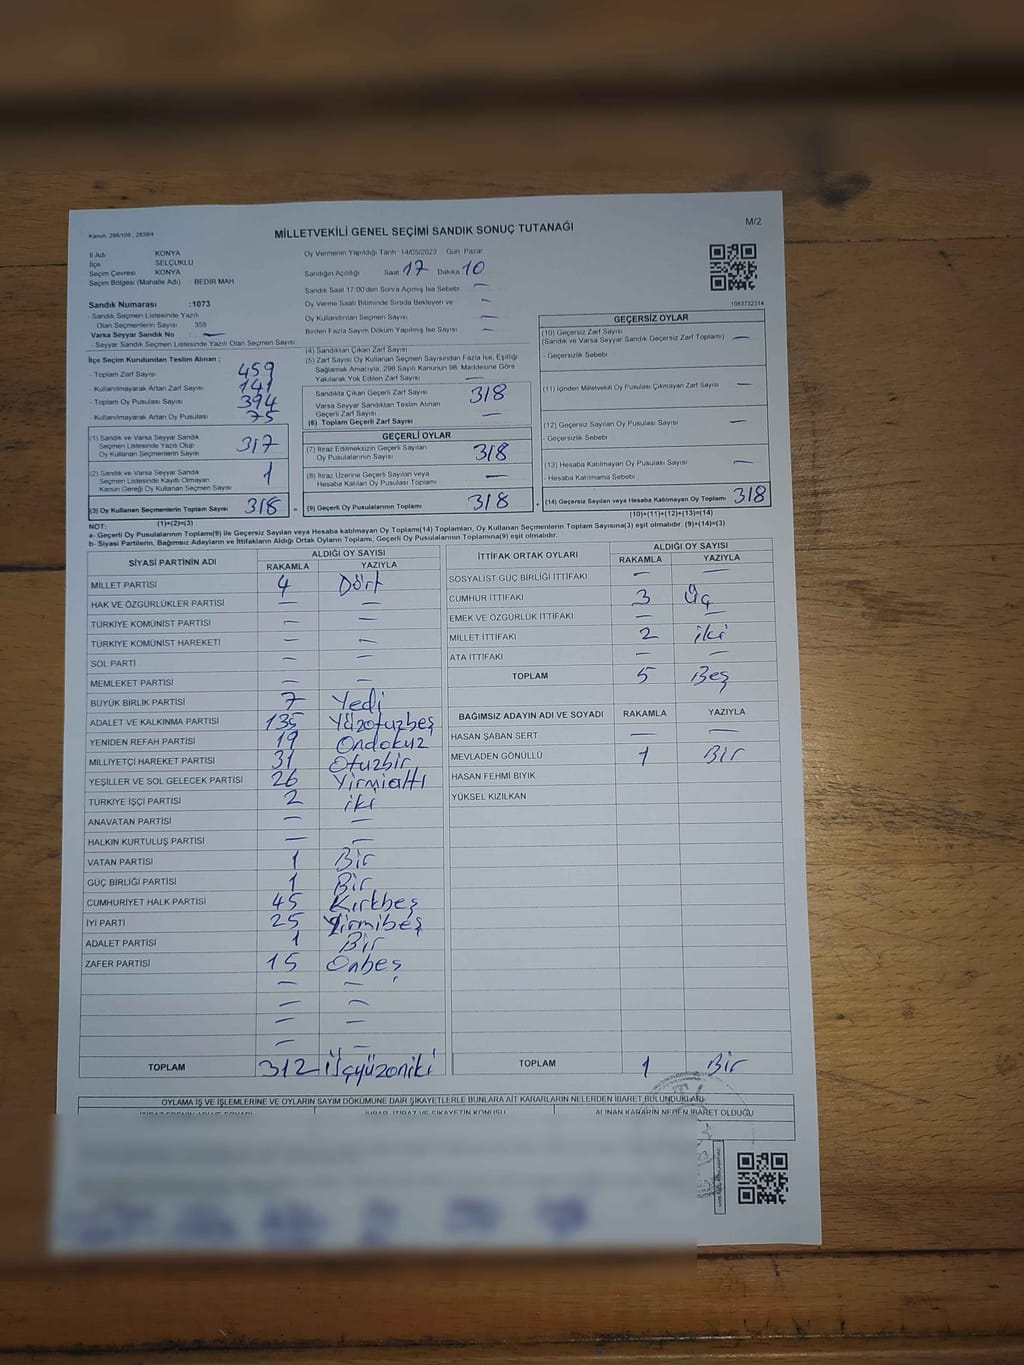 Kanun: 298/105 , 2839/4
MİLLETVEKİLİ GENEL SEÇİMİ SANDIK SONUÇ TUTANAĞI
M/2
İl Adı KONYA
İlçe SELÇUKLU
Seçim Çevresi KONYA
Seçim Bölgesi (Mahalle Adı) BEDİR MAH
Sandık Numarası :1073
- Sandık Seçmen Listesinde Yazılı
Olan Seçmenlerin Sayısı 359
Varsa Seyyar Sandık No : —
- Seyyar Sandık Seçmen Listesinde Yazılı Olan Seçmen Sayısı
Oy Vermenin Yapıldığı Tarih :14/05/2023 Gün: Pazar
Sandığın Açıldığı Saat 17 Dakika 10
Sandık Saat 17:00'den Sonra Açılmış İse Sebebi : —
Oy Verme Saati Bitiminde Sırada Bekleyen ve —
Oy Kullandırılan Seçmen Sayısı : —
Birden Fazla Sayım Döküm Yapılmış İse Sayısı : —
1083732314
İlçe Seçim Kurulundan Teslim Alınan ;
- Toplam Zarf Sayısı 459
- Kullanılmayarak Artan Zarf Sayısı 141
- Toplam Oy Pusulası Sayısı 394
- Kullanılmayarak Artan Oy Pusulası 75
(1) Sandık ve Varsa Seyyar Sandık
Seçmen Listesinde Yazılı Olup
Oy Kullanan Seçmenlerin Sayısı 317
(2) Sandık ve Varsa Seyyar Sandık
Seçmen Listesinde Kayıtlı Olmayan
Kanun Gereği Oy Kullanan Seçmen Sayısı 1
(3) Oy Kullanan Seçmenlerin Toplam Sayısı 318
(1)+(2)=(3)
(4) Sandıktan Çıkan Zarf Sayısı
(5) Zarf Sayısı Oy Kullanan Seçmen Sayısından Fazla İse, Eşitliği
Sağlamak Amacıyla, 298 Sayılı Kanunun 98. Maddesine Göre
Yakılarak Yok Edilen Zarf Sayısı —
Sandıkta Çıkan Geçerli Zarf Sayısı 318
Varsa Seyyar Sandıktan Teslim Alınan
Geçerli Zarf Sayısı —
(6) Toplam Geçerli Zarf Sayısı
GEÇERLİ OYLAR
(7) İtiraz Edilmeksizin Geçerli Sayılan
Oy Pusulalarının Sayısı 318
(8) İtiraz Üzerine Geçerli Sayılan veya
Hesaba Katılan Oy Pusulası Toplamı —
(9) Geçerli Oy Pusulalarının Toplamı 318
GEÇERSİZ OYLAR
(10) Geçersiz Zarf Sayısı
(Sandık ve Varsa Seyyar Sandık Geçersiz Zarf Toplamı) —
- Geçersizlik Sebebi
(11) İçinden Milletvekili Oy Pusulası Çıkmayan Zarf Sayısı —
(12) Geçersiz Sayılan Oy Pusulası Sayısı —
- Geçersizlik Sebebi
(13) Hesaba Katılmayan Oy Pusulası Sayısı —
- Hesaba Katılmama Sebebi
(14) Geçersiz Sayılan veya Hesaba Katılmayan Oy Toplamı 318
(10)+(11)+(12)+(13)=(14)
NOT:
a- Geçerli Oy Pusulalarının Toplamı(9) ile Geçersiz Sayılan veya Hesaba katılmayan Oy Toplamı(14) Toplamları, Oy Kullanan Seçmenlerin Toplam Sayısına(3) eşit olmalıdır. (9)+(14)=(3)
b- Siyasi Partilerin, Bağımsız Adayların ve İttifakların Aldığı Ortak Oyların Toplamı, Geçerli Oy Pusulalarının Toplamına(9) eşit olmalıdır.
SİYASİ PARTİNİN ADI ALDIĞI OY SAYISI
RAKAMLA YAZIYLA
MİLLET PARTİSİ 4 Dört
HAK VE ÖZGÜRLÜKLER PARTİSİ — —
TÜRKİYE KOMÜNİST PARTİSİ — —
TÜRKİYE KOMÜNİST HAREKETİ — —
SOL PARTİ — —
MEMLEKET PARTİSİ — —
BÜYÜK BİRLİK PARTİSİ 7 Yedi
ADALET VE KALKINMA PARTİSİ 135 Yüzotuzbeş
YENİDEN REFAH PARTİSİ 19 Ondokuz
MİLLİYETÇİ HAREKET PARTİSİ 31 Otuzbir
YEŞİLLER VE SOL GELECEK PARTİSİ 26 Yirmialtı
TÜRKİYE İŞÇİ PARTİSİ 2 iki
ANAVATAN PARTİSİ — —
HALKIN KURTULUŞ PARTİSİ — —
VATAN PARTİSİ 1 Bir
GÜÇ BİRLİĞİ PARTİSİ 1 Bir
CUMHURİYET HALK PARTİSİ 45 Kırkbeş
İYİ PARTİ 25 Yirmibeş
ADALET PARTİSİ 1 Bir
ZAFER PARTİSİ 15 Onbeş
— —
— —
— —
— —
TOPLAM 312 üçyüzoniki
İTTİFAK ORTAK OYLARI ALDIĞI OY SAYISI
RAKAMLA YAZIYLA
SOSYALİST GÜÇ BİRLİĞİ İTTİFAKI — —
CUMHUR İTTİFAKI 3 Üç
EMEK VE ÖZGÜRLÜK İTTİFAKI — —
MİLLET İTTİFAKI 2 iki
ATA İTTİFAKI — —
TOPLAM 5 Beş
BAĞIMSIZ ADAYIN ADI VE SOYADI RAKAMLA YAZIYLA
HASAN ŞABAN SERT — —
MEVLADEN GÖNÜLLÜ 1 Bir
HASAN FEHMİ BIYIK
YÜKSEL KIZILKAN
TOPLAM 1 Bir
OYLAMA İŞ VE İŞLEMLERİNE VE OYLARIN SAYIM DÖKÜMÜNE DAİR ŞİKAYETLERLE BUNLARA AİT KARARLARIN NELERDEN İBARET BULUNDUKLARI
ALINAN KARARIN NEDEN İBARET OLDUĞU